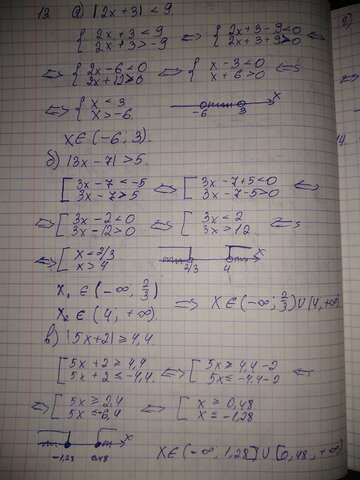 12 а) |2x+3|<9.
{ 2x+3<9 2x+3>-9 ⇔ { 2x+3-9<0 2x+3+9>0 ⇔
⇔ { 2x-6<0 2x+12>0 ⇔ { x-3<0 x+6>0 ⇔
⇔ { x<3 x>-6 -6 3 x
x∈(-6; 3).
б) |3x-7|>5.
[ 3x-7<-5 3x-7>5 ⇔ [ 3x-7+5<0 3x-7-5>0 ⇔
⇔ [ 3x-2<0 3x-12>0 ⇔ [ 3x<2 3x>12 ⇔
⇔ [ x<2/3 x>4 2/3 4 x
x₁∈(-∞; 2/3)
x₂∈(4; +∞) ⇒ x∈(-∞; 2/3)∪(4,+∞)
в) |5x+2|≥4,4
[ 5x+2≥4,4 5x+2≤-4,4 ⇔ [ 5x≥4,4-2 5x≤-4,4-2 ⇔
⇔ [ 5x≥2,4 5x≤-6,4 ⇔ [ x≥0,48 x=-1,28
-1,28 0,48 x x∈(-∞, 1,28]∪[0,48, +∞)